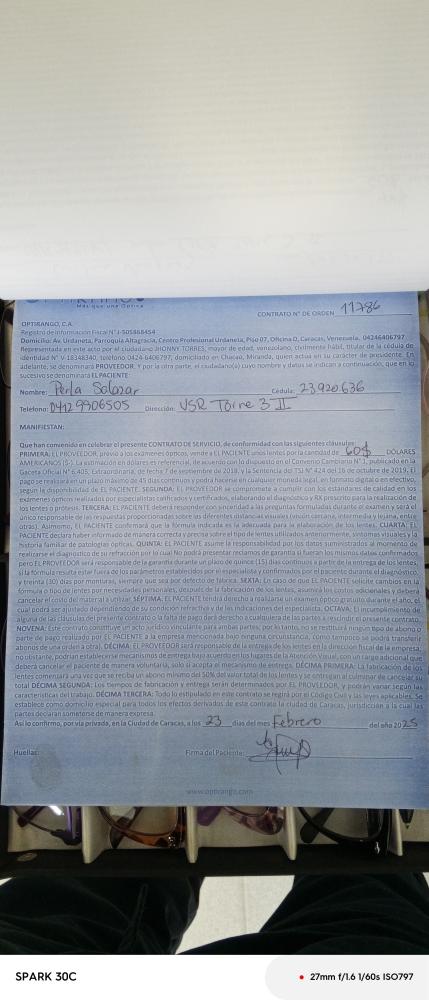 OPTIRANGO
Más que una Óptica
CONTRATO N° DE ORDEN 11786
OPTIRANGO, C.A.
Registro de Información Fiscal N° J-505868454
Domicilio: Av. Urdaneta, Parroquia Altagracia, Centro Profesional Urdaneta, Piso 07, Oficina D, Caracas, Venezuela. 04246406797.
Representada en este acto por el ciudadano JHONNY TORRES, mayor de edad, venezolano, civilmente hábil, titular de la cédula de
identidad N° V-18348340, teléfono 0424-6406797, domiciliado en Chacao, Miranda, quien actúa en su carácter de presidente. En
adelante, se denominará PROVEEDOR. Y por la otra parte, el ciudadano(a) cuyo nombre y datos se indican a continuación, que en lo
sucesivo se denominará EL PACIENTE:
Nombre: Perla Salazar Cédula: 23920636
Teléfono: 04129906505 Dirección: USR Torre 3 II
MANIFIESTAN:
Que han convenido en celebrar el presente CONTRATO DE SERVICIO, de conformidad con las siguientes cláusulas:
PRIMERA: EL PROVEEDOR, previo a los exámenes ópticos, vende a EL PACIENTE unos lentes por la cantidad de 60$ DÓLARES
AMERICANOS ($-). La estimación en dólares es referencial, de acuerdo con lo dispuesto en el Convenio Cambiario N° 1, publicado en la
Gaceta Oficial N° 6.405, Extraordinaria, de fecha 7 de septiembre de 2018, y la Sentencia del TSJ N° 424 del 16 de octubre de 2019. El
pago se realizará en un plazo máximo de 45 días continuos y podrá hacerse en cualquier moneda legal, en formato digital o en efectivo,
según la disponibilidad de EL PACIENTE. SEGUNDA: EL PROVEEDOR se compromete a cumplir con los estándares de calidad en los
exámenes ópticos realizados por especialistas calificados y certificados, elaborando el diagnóstico y RX prescrito para la realización de
los lentes o prótesis. TERCERA: EL PACIENTE deberá responder con sinceridad a las preguntas formuladas durante el examen y será el
único responsable de las respuestas proporcionadas sobre las diferentes distancias visuales (visión cercana, intermedia y lejana, entre
otras). Asimismo, EL PACIENTE confirmará que la fórmula indicada es la adecuada para la elaboración de los lentes. CUARTA: EL
PACIENTE declara haber informado de manera correcta y precisa sobre el tipo de lentes utilizados anteriormente, síntomas visuales y la
historia familiar de patologías ópticas. QUINTA: EL PACIENTE asume la responsabilidad por los datos suministrados al momento de
realizarse el diagnóstico de su refracción por lo cual No podrá presentar reclamos de garantía si fueran los mismos datos confirmados
pero EL PROVEEDOR será responsable de la garantía durante un plazo de quince (15) días continuos a partir de la entrega de los lentes.
si la fórmula resulta estar fuera de los parámetros establecidos por el especialista y confirmados por el paciente durante el diagnóstico,
y treinta (30) días por monturas, siempre que sea por defecto de fábrica. SEXTA: En caso de que EL PACIENTE solicite cambios en la
fórmula o tipo de lentes por necesidades personales, después de la fabricación de los lentes, asumirá los costos adicionales y deberá
cancelar el costo del material a utilizar. SÉPTIMA: EL PACIENTE tendrá derecho a realizarse un examen óptico gratuito durante el año, el
cual podrá ser ajustado dependiendo de su condición refractiva y de las indicaciones del especialista. OCTAVA: El incumplimiento de
alguna de las cláusulas del presente contrato o la falta de pago dará derecho a cualquiera de las partes a rescindir el presente contrato.
NOVENA: Este contrato constituye un acto jurídico vinculante para ambas partes; por lo tanto, no se restituirá ningún tipo de abono o
parte de pago realizado por EL PACIENTE a la empresa mencionada bajo ninguna circunstancia, como tampoco se podrá transferir
abonos de una orden a otra. DÉCIMA: EL PROVEEDOR será responsable de la entrega de los lentes en la dirección fiscal de la empresa,
no obstante, podrían establecerse mecanismos de entrega bajo acuerdo en los lugares de la Atención Visual, con un cargo adicional que
deberá cancelar el paciente de manera voluntaria, solo si acepta el mecanismo de entrega. DÉCIMA PRIMERA: La fabricación de los
lentes comenzará una vez que se reciba un abono mínimo del 50% del valor total de los lentes y se entregan al culminar de cancelar su
total DÉCIMA SEGUNDA: Los tiempos de fabricación y entrega serán determinados por EL PROVEEDOR, y podrán variar según las
características del trabajo. DÉCIMA TERCERA: Todo lo estipulado en este contrato se regirá por el Código Civil y las leyes aplicables. Se
establece como domicilio especial para todos los efectos derivados de este contrato la ciudad de Caracas, jurisdicción a la cual las
partes declaran someterse de manera expresa.
Así lo confirmo, por vía privada, en la Ciudad de Caracas, a los 23 días del mes Febrero del año 2025
Huellas: Firma del Paciente:
www.optirango.com
SPARK 30C
27mm f/1.6 1/60s ISO797